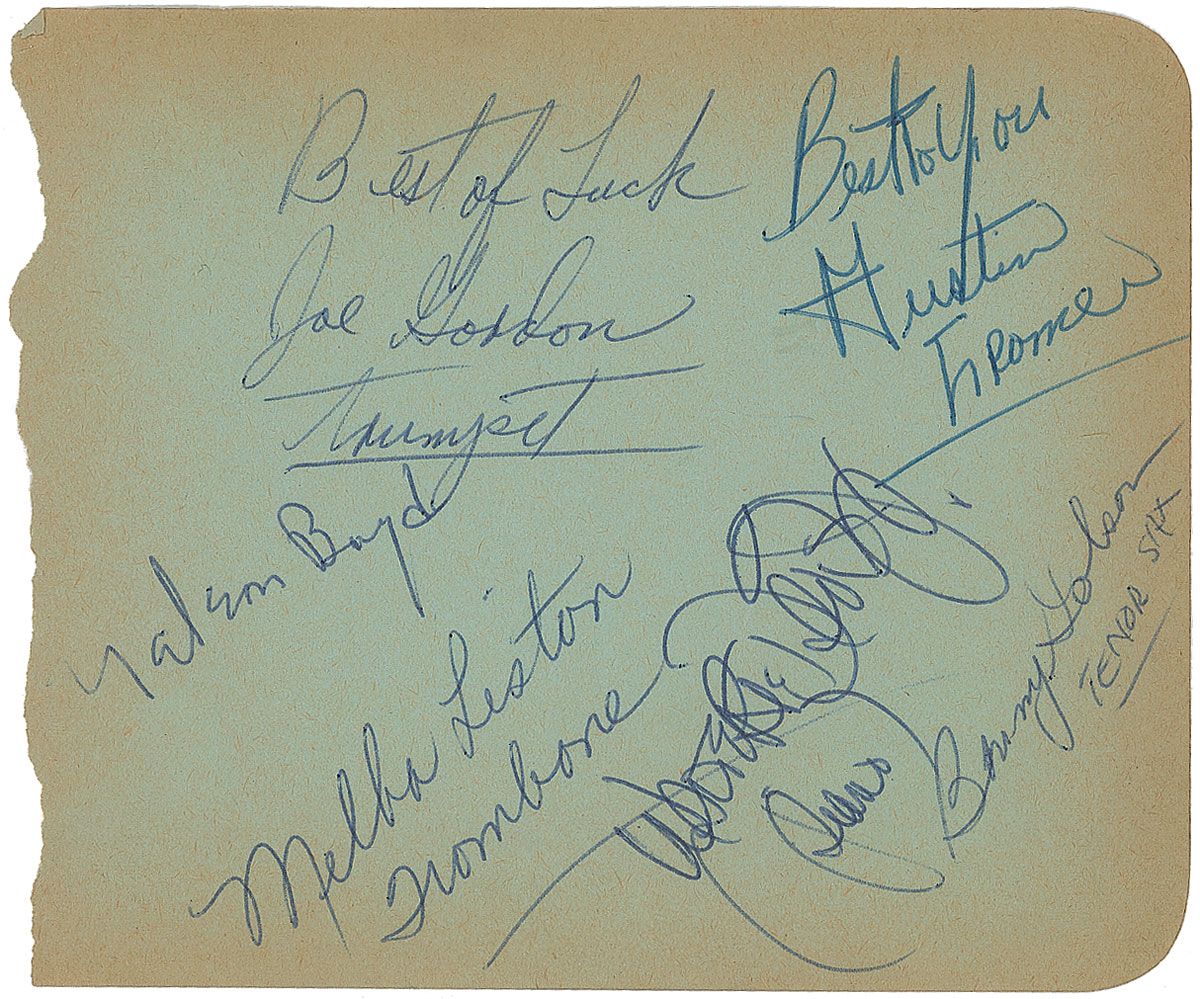 Best of Luck
Joe Gordon
Trumpet
Best to You
Austin
Cromer
Nelson Boyd
Melba Liston
Trombone
Piano
Benny Golson
TENOR SAX